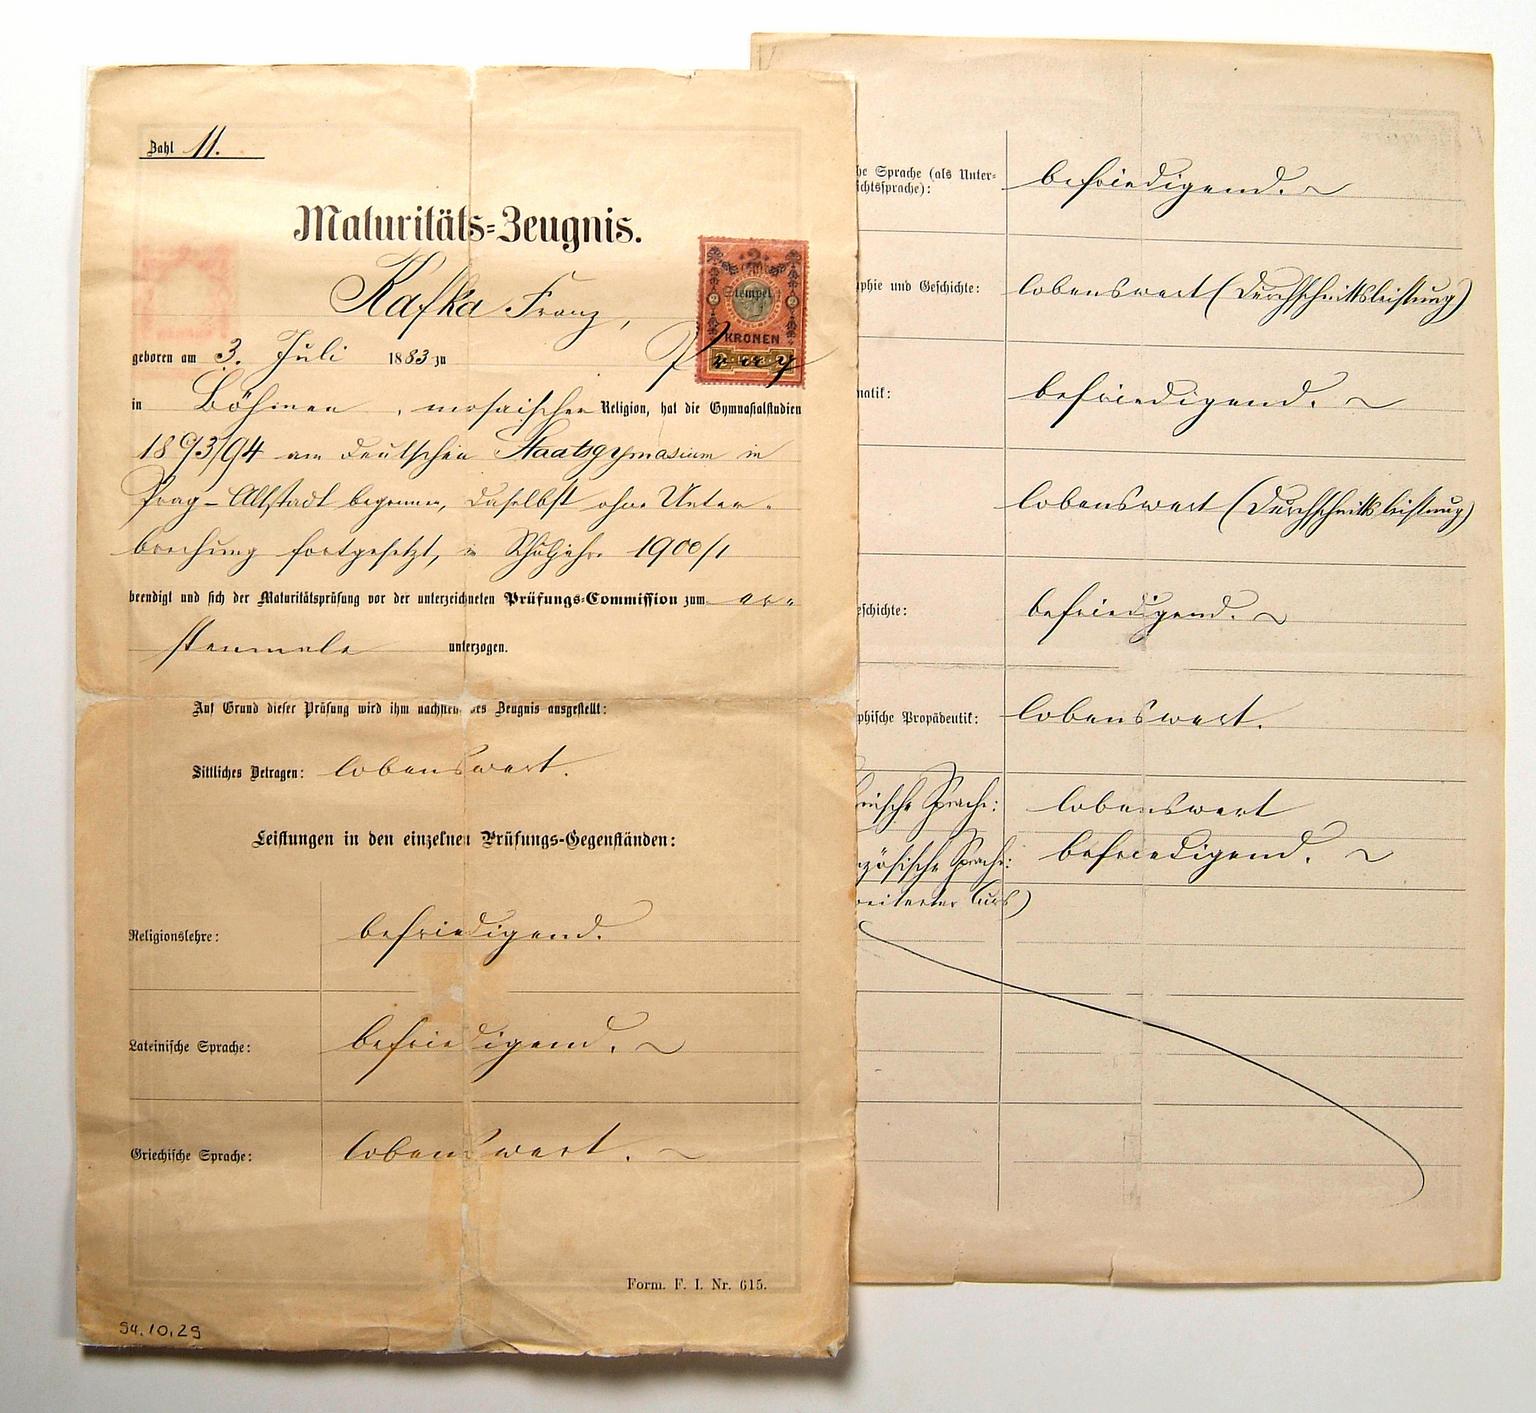 Zahl 11.
Maturitäts-Zeugnis.
Kafka Franz,
geboren am 3. Juli 1883 zu Prag
in Böhmen, mosaischer Religion, hat die Gymnasialstudien
1893/94 am deutschen Staatsgymnasium in
Prag-Altstadt begonnen, daselbst ohne Unter-
brechung fortgesetzt, im Schuljahre 1900/1
beendigt und sich der Maturitätsprüfung vor der unterzeichneten Prüfungs-Commission zum er-
stenmale unterzogen.
Auf Grund dieser Prüfung wird ihm nachsten des Zeugnis ausgestellt:
Sittliches Betragen: lobenswert.
Leistungen in den einzelnen Prüfungs-Gegenständen:
Religionslehre: befriedigend.
Lateinische Sprache: befriedigend. ~
Griechische Sprache: lobenswert. ~
Form. F. I. Nr. 615.
94.10.29
Stempel
2
KRONEN
he Sprache (als Unter-
ichtssprache): befriedigend. ~
phie und Geschichte: lobenswert (Durchschnittsleistung)
matik: befriedigend. ~
lobenswert (Durchschnittsleistung)
eschichte: befriedigend. ~
phische Propädeutik: lobenswert.
mische Sprache: lobenswert
nzösische Sprache: befriedigend. ~
weiterter Curs)